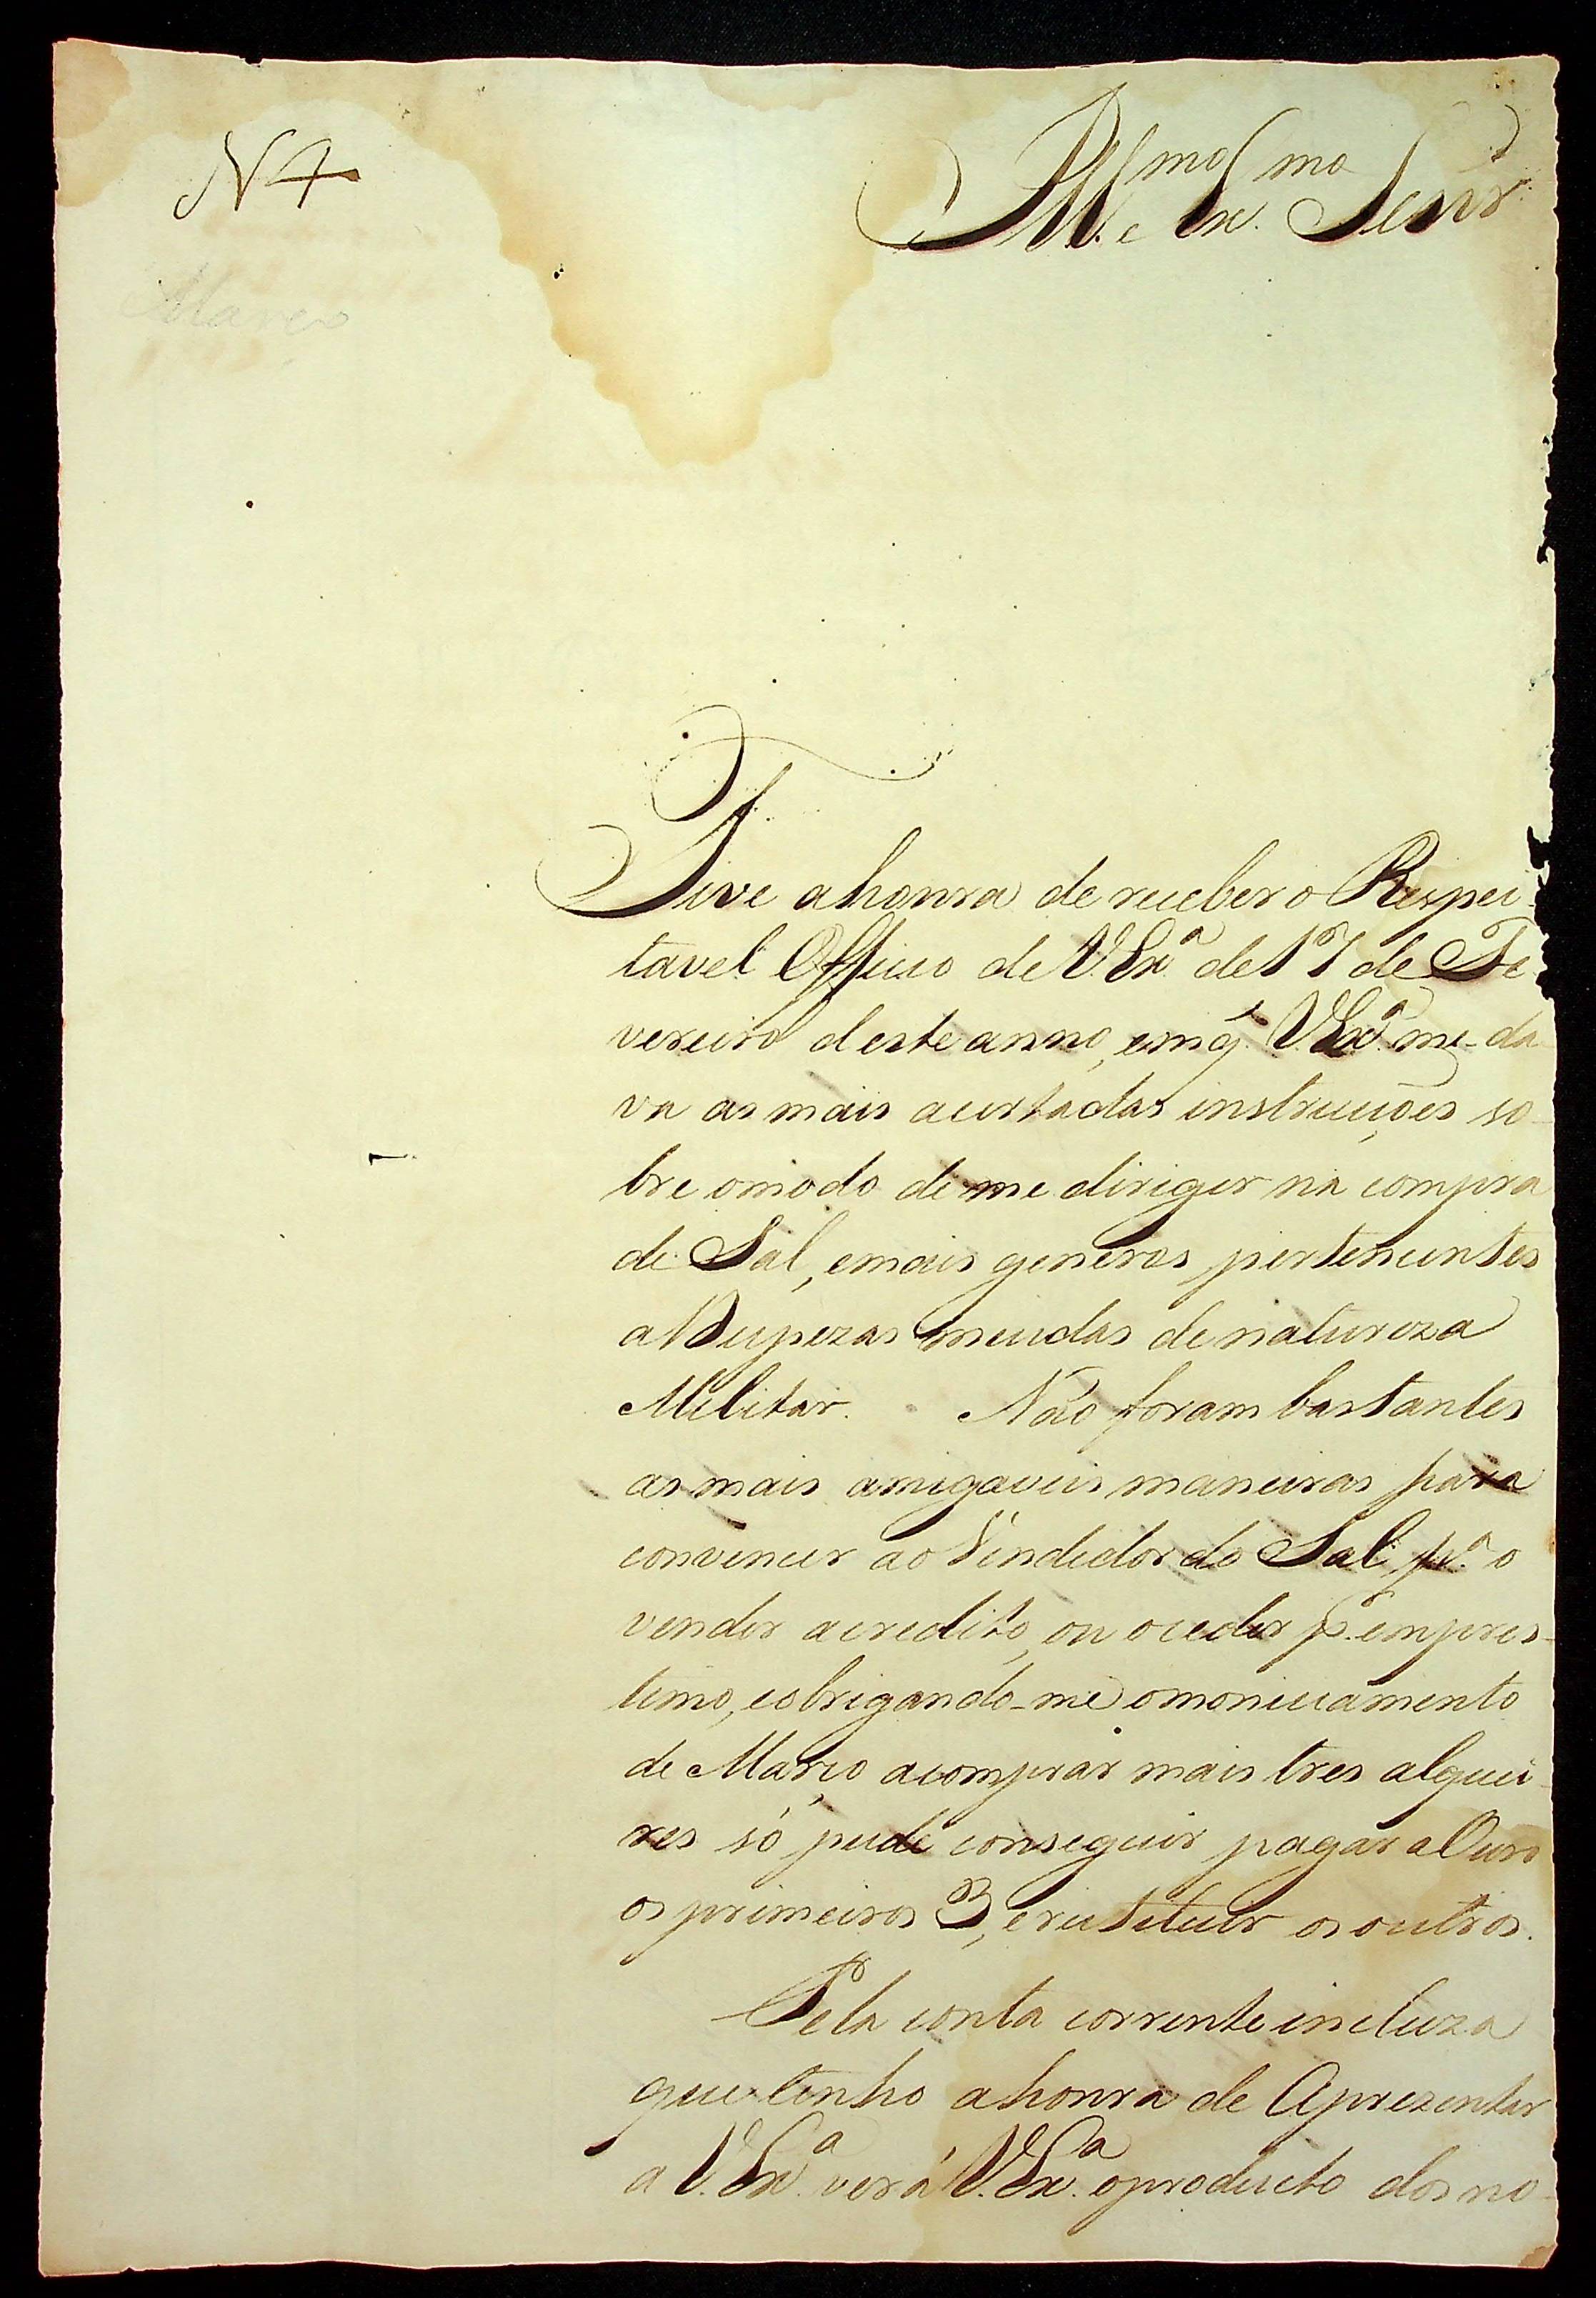 N 4
Ill.mo e Ex.mo Senr.
Março
Tive a honra de receber o Respei-
tavel Officio de V. Ex.a de 17 de Fe
vereiro deste anno, em q.e V. Ex.a me da
va as mais acertadas instrucções so-
bre o modo de me dirigir na compra
de Sal, e mais generos pertencentes
a Despezas miudas de natureza
Militar. Não foram bastantes
as mais amigaveis maneiras para
convencer ao Vendedor do Sal, p.a o
vender a credito, ou o ceder p.r empres-
timo, e obrigando-me o monisiamento
de Março a comprar mais tres alquei-
res só pude conseguir pagar a Ouro
os primeiros 3, e restituir os outros.
Pela conta corrente incluza
que tenho a honra de Aprezentar
a V. Ex.a verá V. Ex.a o producto dos no-